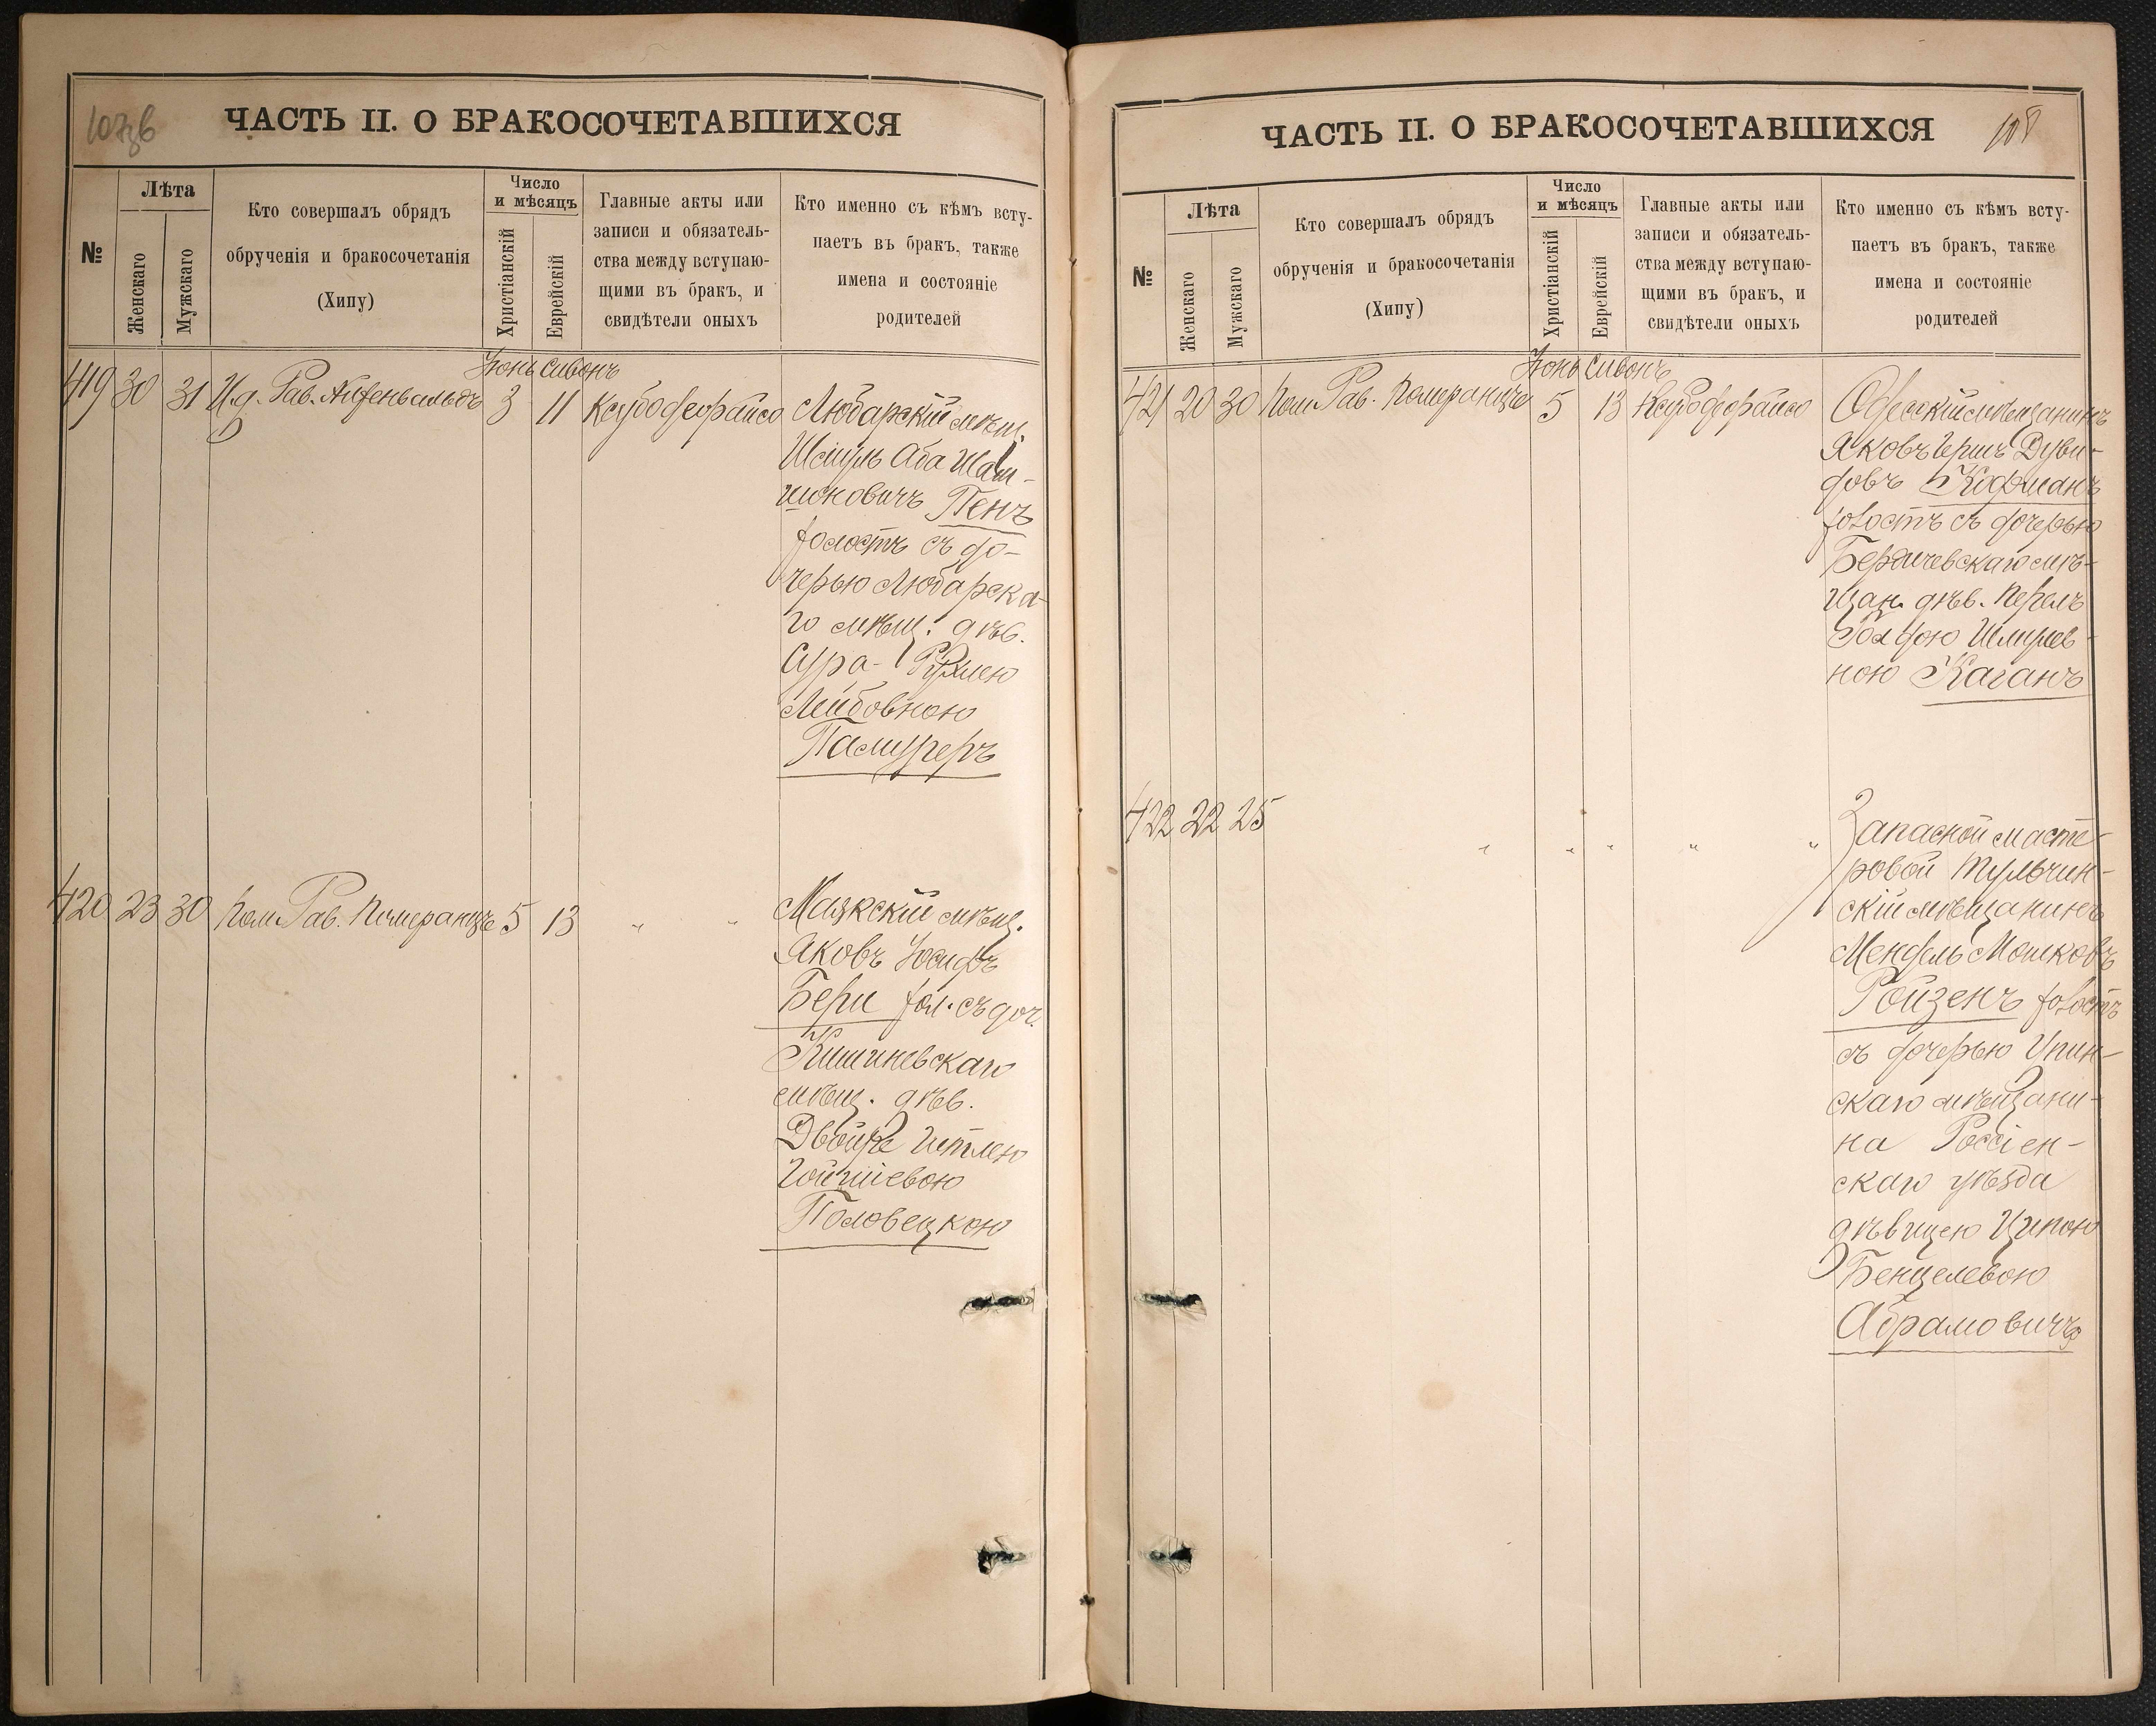 107зв
ЧАСТЬ II. О БРАКОСОЧЕТАВШИХСЯ
№
Лѣта
Женскаго
Мужскаго
Кто совершалъ обрядъ
обрученія и бракосочетанія
(Хипу)
Число
и мѣсяцъ
Христіанскій
Еврейскій
Главные акты или
записи и обязатель-
ства между вступаю-
щими въ бракъ, и
свидѣтели оныхъ
Кто именно съ кѣмъ всту-
паетъ въ бракъ, также
имена и состояніе
родителей
Іюнь Сивонъ
419 30 31 И.д. Рав. 3 11 Любарскій мѣщ.
Шмуль Аба Шам-
шоновичъ Пенъ
холостъ съ до-
черью Любарска-
го мѣщ. дѣв.
Сура-
Лейбовною
420 23 30 Пом. Рав. Померанцъ 5 13 " " Маякскій мѣщ.
Яковъ Іосифъ
Бери хол. съ доч.
Кишиневскаго
мѣщ. дѣв.
Двойра Итлею
Половецкою
ЧАСТЬ II. О БРАКОСОЧЕТАВШИХСЯ
108
№
Лѣта
Женскаго
Мужскаго
Кто совершалъ обрядъ
обрученія и бракосочетанія
(Хипу)
Число
и мѣсяцъ
Христіанскій
Еврейскій
Главные акты или
записи и обязатель-
ства между вступаю-
щими въ бракъ, и
свидѣтели оныхъ
Кто именно съ кѣмъ всту-
паетъ въ бракъ, также
имена и состояніе
родителей
Іюнь Сивонъ
421 20 30 Пом. Рав. Померанцъ 5 13 Одесскій мѣщанинъ
Яковъ Гершъ Дуви-
довъ Кофманъ
холостъ съ дочерью
Бердичевскаго мѣ-
щан. дѣв. Перель
Шмулев-
ною Каганъ
422 22 25 " " " " " Запасной масте-
ровой Тульчин-
скій мѣщанинъ
Мендель Мошковъ
Ройзенъ холостъ
съ дочерью
скаго мѣщани-
на Россіен-
скаго уѣзда
дѣвицею Ципою
Бенцелевою
Абрамовичъ